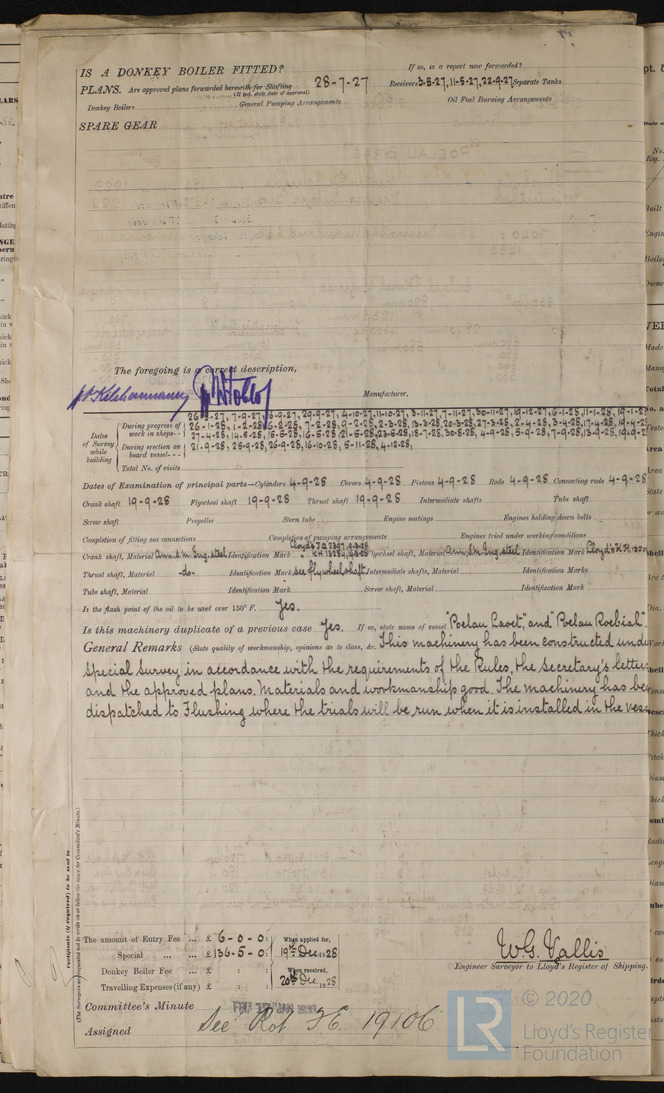 IS A DONKEY BOILER FITTED? If so, is a report now forwarded?
PLANS. Are approved plans forwarded herewith for Shafting 28-7-27 Receivers 3-5-27, 11-5-27, 22-9-27 Separate Tanks
(If not, state date of approval)
Donkey Boilers General Pumping Arrangements Oil Fuel Burning Arrangements
SPARE GEAR
The foregoing is a correct description,
Manufacturer.
Dates of Survey while building
During progress of work in shops - -
7-9-27, 16-9-27, 29-9-27, 4-10-27, 11-10-27, 3-11-27, 7-11-27, 30-11-27, 19-12-27, 6-1-28, 11-1-28, 19-1-2
26-1-28, 1-2-28, 6-2-28, 7-2-28, 9-2-28, 2-3-28, 13-3-28, 20-3-28, 27-3-28, 2-4-28, 3-4-28, 17-4-28, 19-4-28
27-4-28, 14-5-28, 15-5-28, 16-5-28, 21-5-28, 23-5-28, 18-7-28, 30-8-28, 4-9-28, 5-9-28, 7-9-28, 13-9-28, 19-9-2
During erection on board vessel - - -
21-9-28, 25-9-28, 26-9-28, 16-10-28, 5-11-28, 4-12-28,
Total No. of visits
Dates of Examination of principal parts—Cylinders 4-9-28 Covers 4-9-28 Pistons 4-9-28 Rods 4-9-28 Connecting rods 4-9-28
Crank shaft 19-9-28 Flywheel shaft 19-9-28 Thrust shaft 19-9-28 Intermediate shafts Tube shaft
Screw shaft Propeller Stern tube Engine seatings Engines holding down bolts
Completion of fitting sea connections Completion of pumping arrangements Engines tried under working conditions
Crank shaft, Material Ann. S.M. Ing. steel Identification Mark Lloyd's Flywheel shaft, Material Ann. S.M. Ing. steel Identification Mark Lloyd's
Thrust shaft, Material -do- Identification Mark see flywheel shaft Intermediate shafts, Material Identification Marks
Tube shaft, Material Identification Mark Screw shaft, Material Identification Mark
Is the flash point of the oil to be used over 150° F. Yes.
Is this machinery duplicate of a previous case Yes. If so, state name of vessel "Poelau Laoet", and "Poelau Roebiah".
General Remarks (State quality of workmanship, opinions as to class, &c. This machinery has been constructed unde
Special Survey in accordance with the requirements of the Rules, the Secretary's letters
and the approved plans. Materials and workmanship good. The machinery has be
dispatched to Flushing where the trials will be run when it is installed in the vess
Certificate (if required) to be sent to
(The Surveyors are requested not to write on or below the space for Committee's Minute.)
The amount of Entry Fee ... £ 6-0-0: When applied for,
Special ... ... £ 136-5-0: 19th Dec. 1928
Donkey Boiler Fee ... £ : : When received,
Travelling Expenses (if any) £ : : 20th Dec. 1928
W.G. Vallis
Engineer Surveyor to Lloyd's Register of Shipping.
Committee's Minute
Assigned See Rot F.E. 19106
© 2020
Lloyd's Register
Foundation